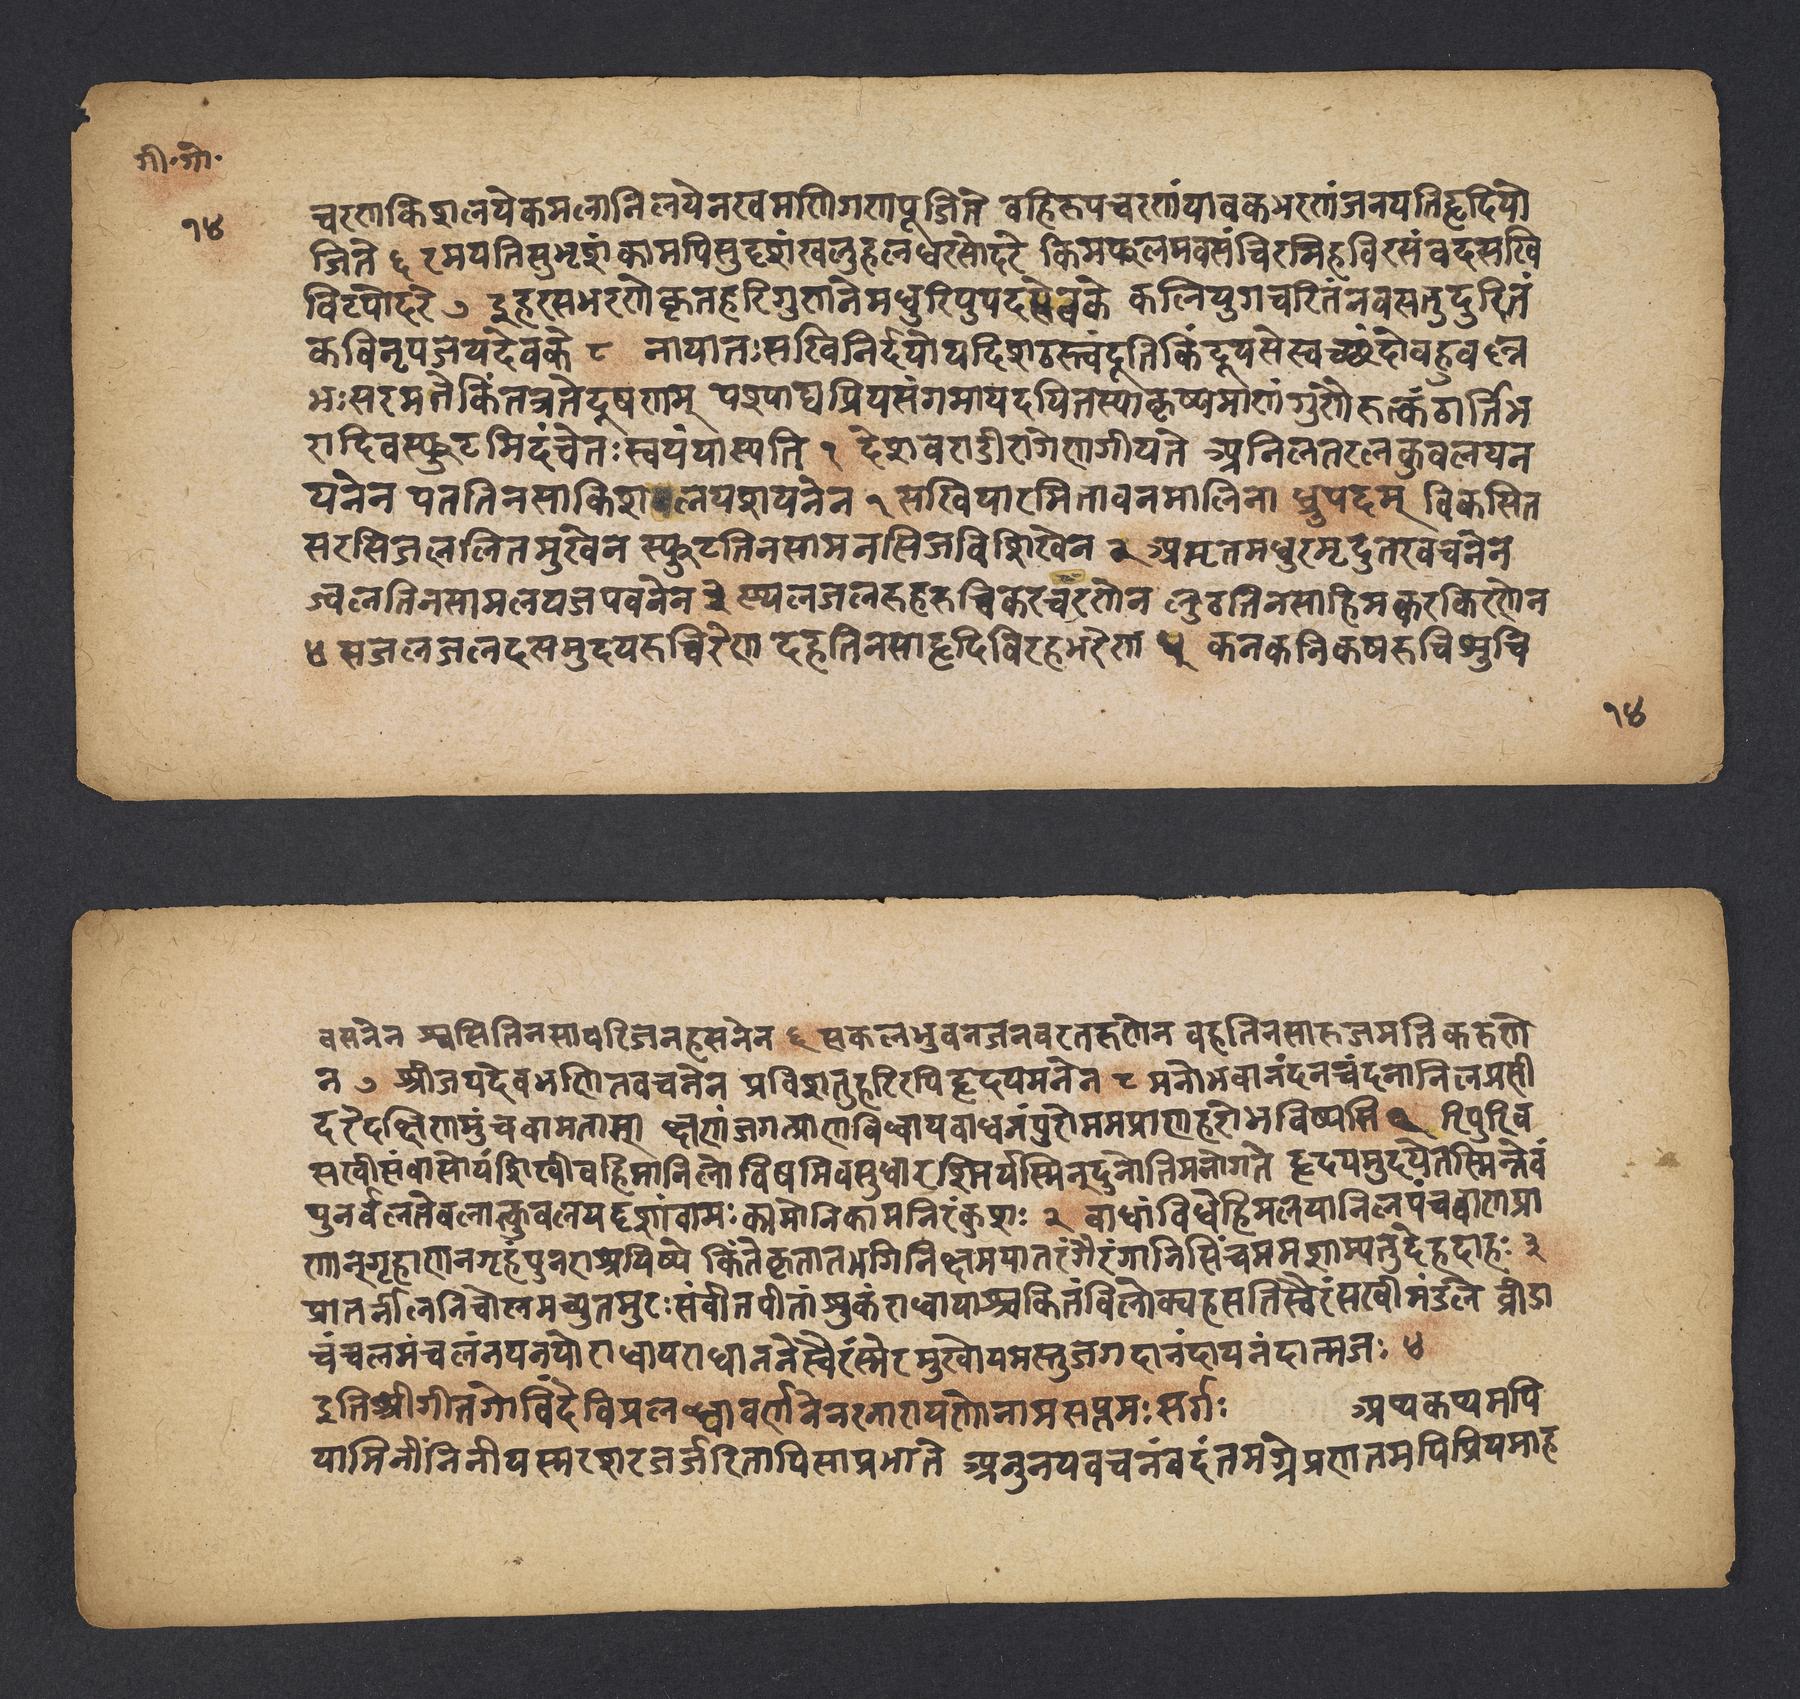 गी॰गो॰
१४
चरणकिशलयेकमलानिलयेनखमणिगणपूजिते वहिरुपचरणंयावकभरणंजनयतिहृदियो
जिते ६ रमयतिसुभृशंकामपिसुदृशंखलुहलधरसोदरे किमफलमवसंचिरमिहविरसंवदसखि
विटपोदरे ७ इहरसभरणेकृतहरिगुणनेमधुरिपुपदसेवके कलियुगचरितंनवसतुदुरितं
कविनृपजयदेवके ८ नायातःसखिनिर्दयोयदिशठस्त्वंदूतिकिंदूयसेस्वच्छंदोवहुवल्ल
भःसरमतेकिंतत्रतेदूषणम् पश्याद्यप्रियसंगमायदयितस्याकृष्यमाणंगुणैरुत्कंठार्तिभ
रादिवस्फुटमिदंचेतःस्वयंयास्यति १ देशवराडीरागेणगीयते अनिलतरलकुवलयन
यनेन पततिनसाकिशलयशयनेन १ सखियारमितावनमालिना ध्रुपदम् विकसित
सरसिजललितमुखेन स्फुटतिनसामनसिजविशिखेन २ अमृतमधुरमृदुतरवचनेन
ज्वलतिनसामलयजपवनेन ३ स्थलजलरुहरुचिकरचरणेन लुठतिनसाहिमकरकिरणेन
४ सजलजलदसमुदयरुचिरेण दहतिनसाहृदिविरहभरेण ५ कनकनिकषरुचिशुचि
१४
वसनेन श्वसितिनसापरिजनहसनेन ६ सकलभुवनजनवरतरुणेन वहतिनसारुजमतिकरुणे
न ७ श्रीजयदेवभणितवचनेन प्रविशतुहरिरपिहृदयमनेन ८ मनोभवानंदनचंदनानिलप्रसी
दरेदक्षिणमुंचवामताम् क्षणंजगत्प्राणविधायवाधवंपुरोममप्राणहरोभविष्यसि १ रिपुरिव
सखीसंवासोयंशिखीवहिमानिलो विषमिवसुधारश्मिर्यस्मिन्दुनोतिमनोगते हृदयमुदयेतस्मिन्नेवं
पुनर्वलतेवलात्कुवलयदृशांवामःकामोनिकामनिरंकुशः २ वाधांविधेहिमलयानिलपंचवाणप्रा
णान्गृहाणनगृहंपुनराश्रयिष्ये किंतेकृतांतभगिनिक्षमयातरंगैरंगानिसिंचममशाम्यतुदेहदाहः ३
प्रातर्नीलनिचोलमच्युतमुरःसंवीतपीतांशुकंराधायाश्चकितंविलोक्यहसतिस्वैरंसखीमंडले व्रीडा
चंचलमंचलंनयनयोराधायराधाननेस्वैरंस्मेरमुखोयमस्तुजगदानंदायनंदात्मजः ४
इतिश्रीगीतगोविंदेविप्रलब्धावर्णनेनरनारायणोनामसप्तमःसर्गः अथकथमपि
यामिनींविनीयस्मरशरजर्जरितापिसाप्रभाते अनुनयवचनंवदंतमग्रेप्रणतमपिप्रियमाह